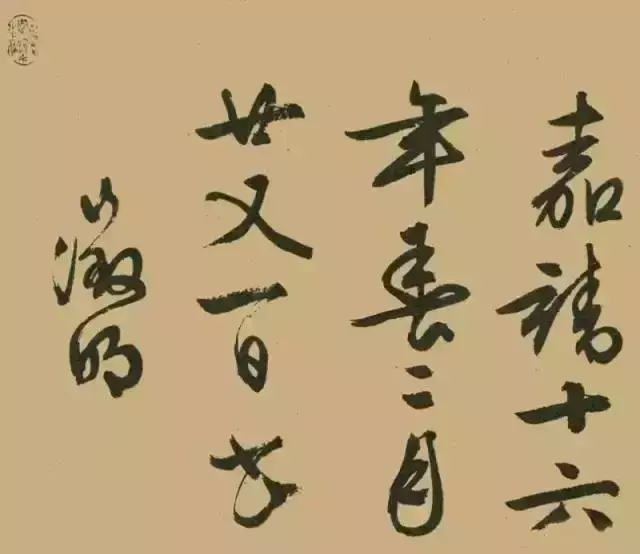 嘉靖十六
年春二月
廿又一日書
徵明